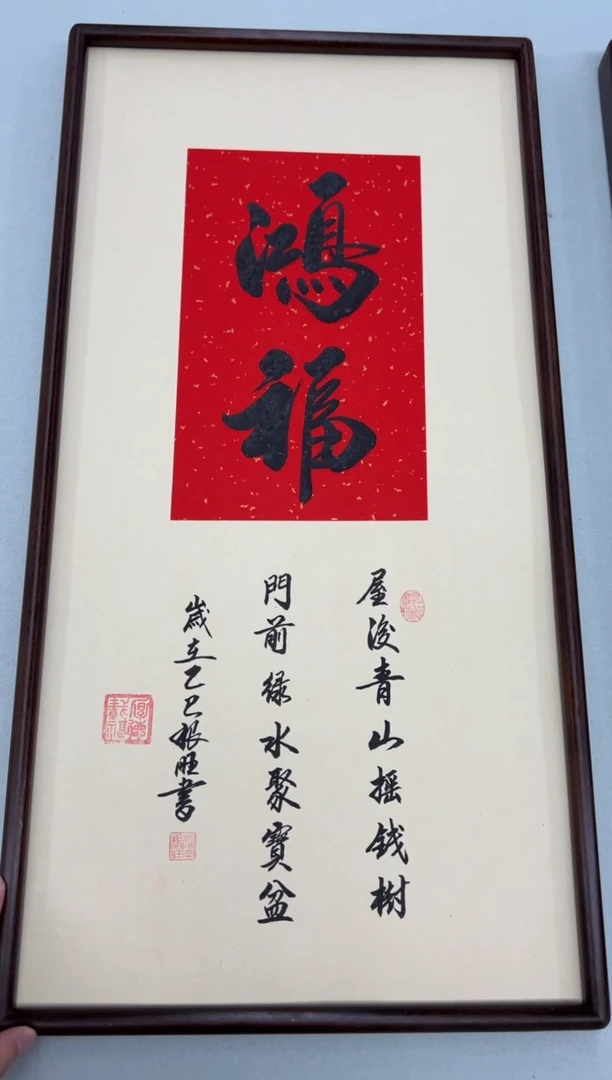 鴻福
屋後青山摇錢樹
門前綠水聚寶盆
歲在乙巳根旺書